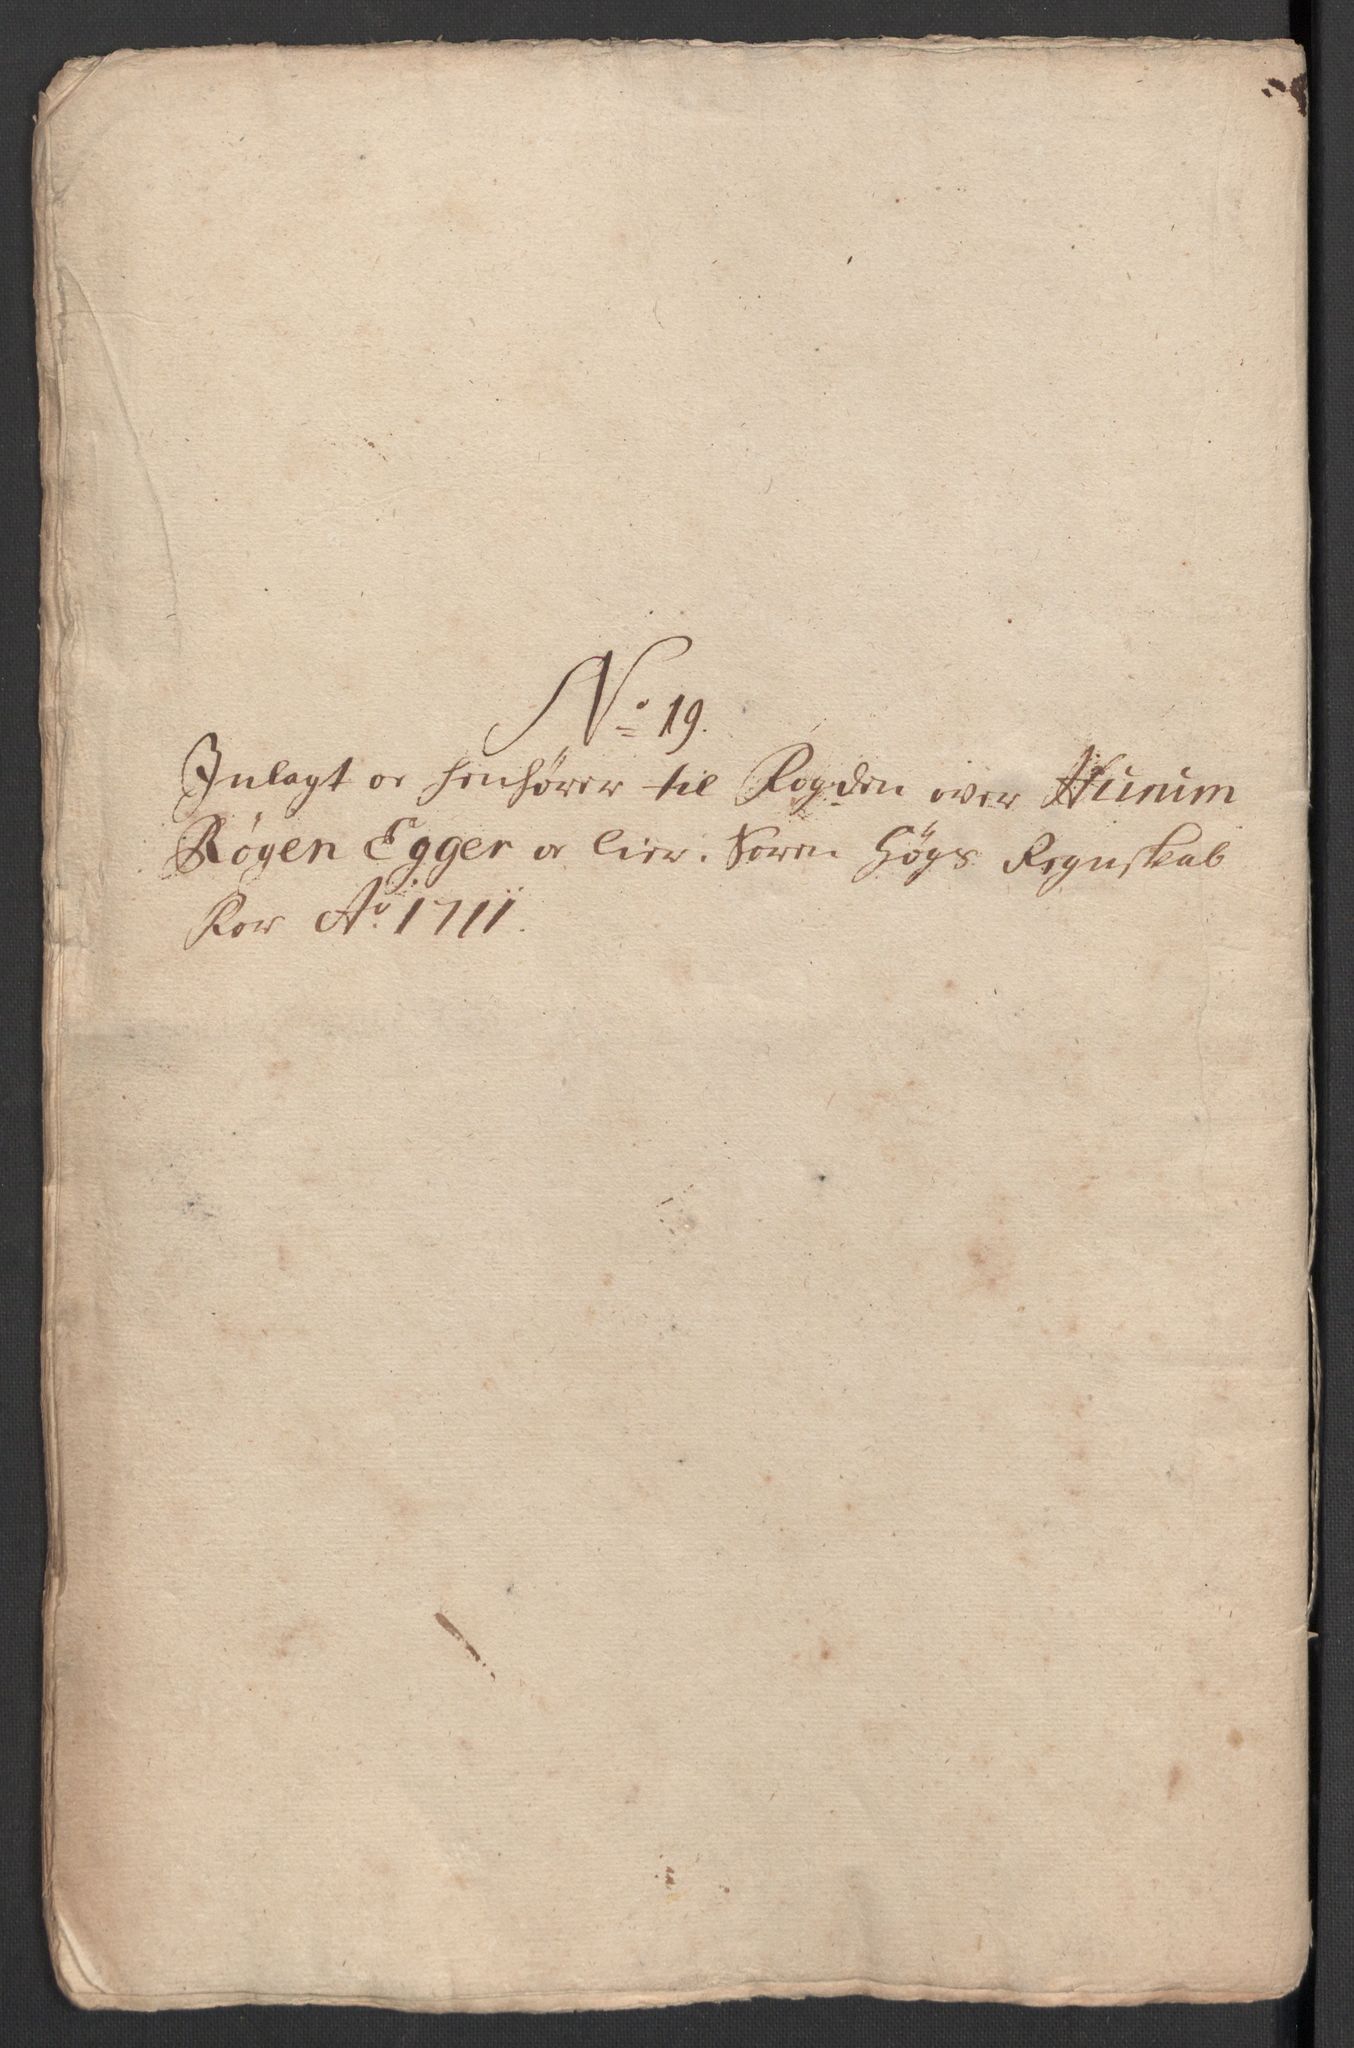 No 19.
Inlagt oc henhører til Fogden over Hurum
Røgen Egger oc lier. Søren Høgs Regnskab
For Ao 1711.